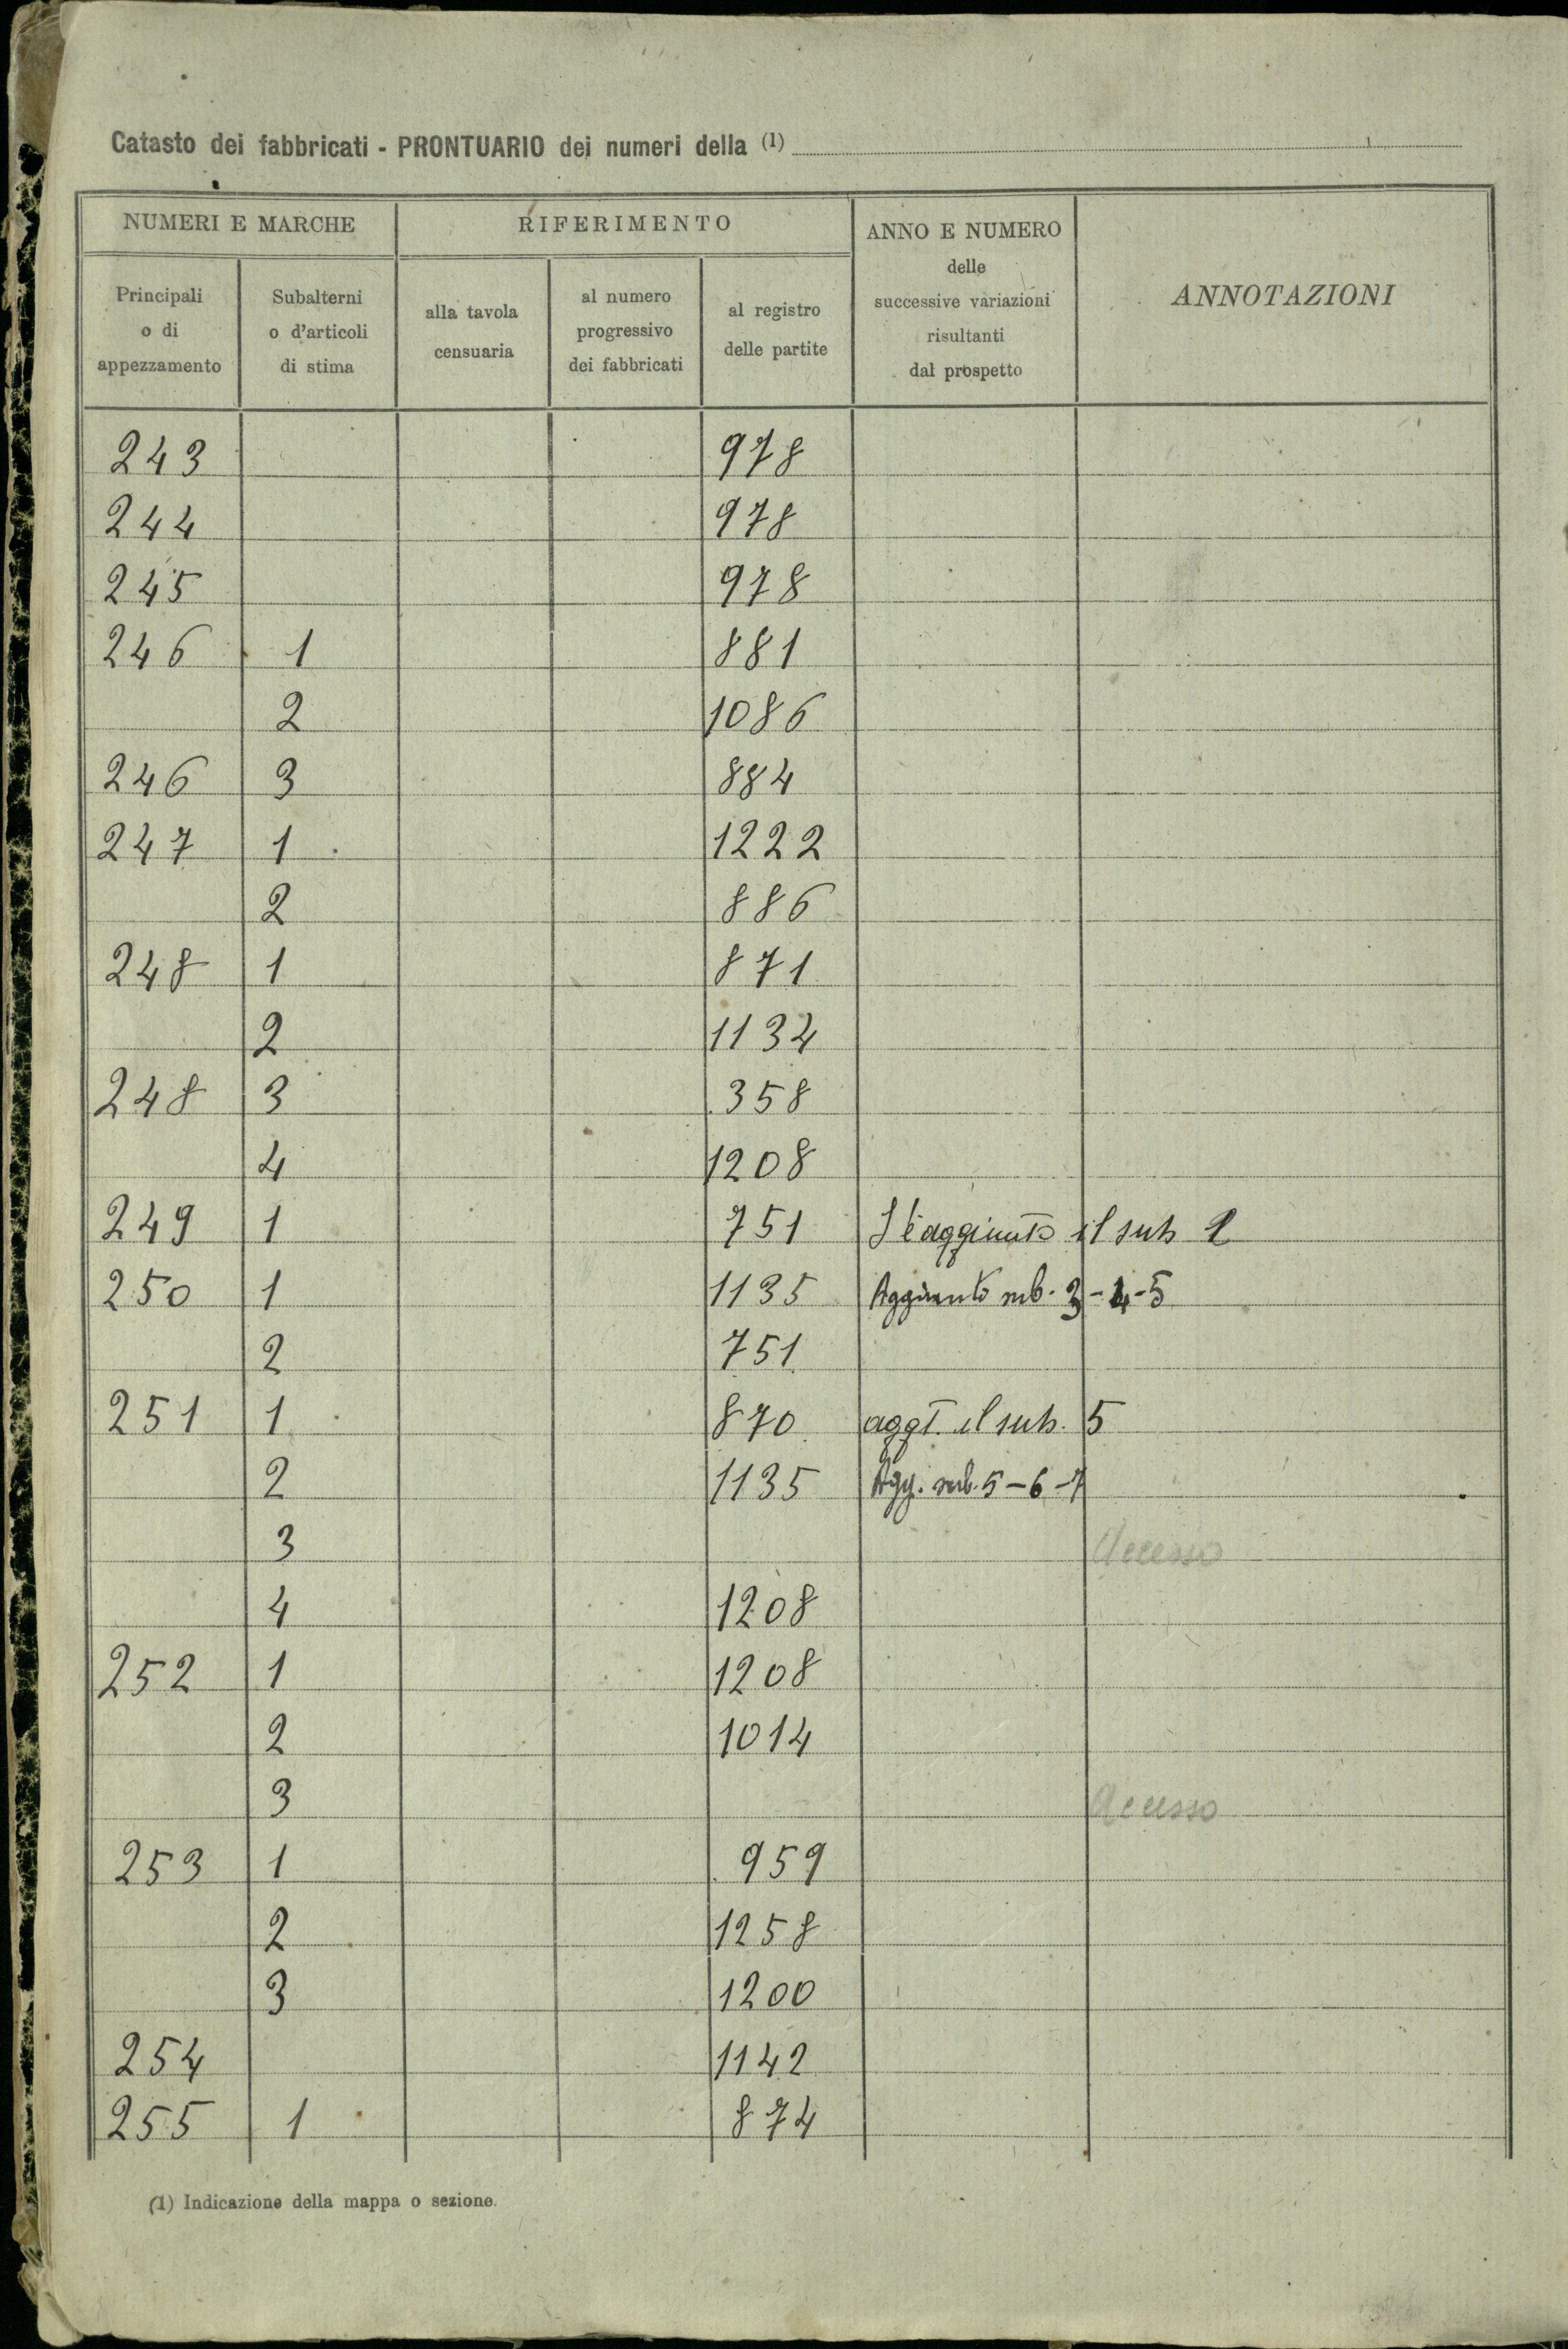 Catasto dei fabbricati - PRONTUARIO dei numeri della (1)
NUMERI E MARCHE
RIFERIMENTO
ANNO E NUMERO
delle
successive variazioni
risultanti
dal prospetto
ANNOTAZIONI
Principali
o di
appezzamento
Subalterni
o d'articoli
di stima
alla tavola
censuaria
al numero
progressivo
dei fabbricati
al registro
delle partite
243 978
244 978
245 978
246 1 881
2 1086
246 3 884
247 1 1222
2 886
248 1 871
2 1134
248 3 358
4 1208
249 1 751 S'è aggiunto il sub
250 1 1135 Aggiunto sub. 3-4-5
2 751
251 1 870 aggt. il sub. 5
2 1135 Agg. sub. 5-6-7
3 Accesso
4 1208
252 1 1208
2 1014
3 Accesso
253 1 959
2 1258
3 1200
254 1142
255 1 874
(1) Indicazione della mappa o sezione.